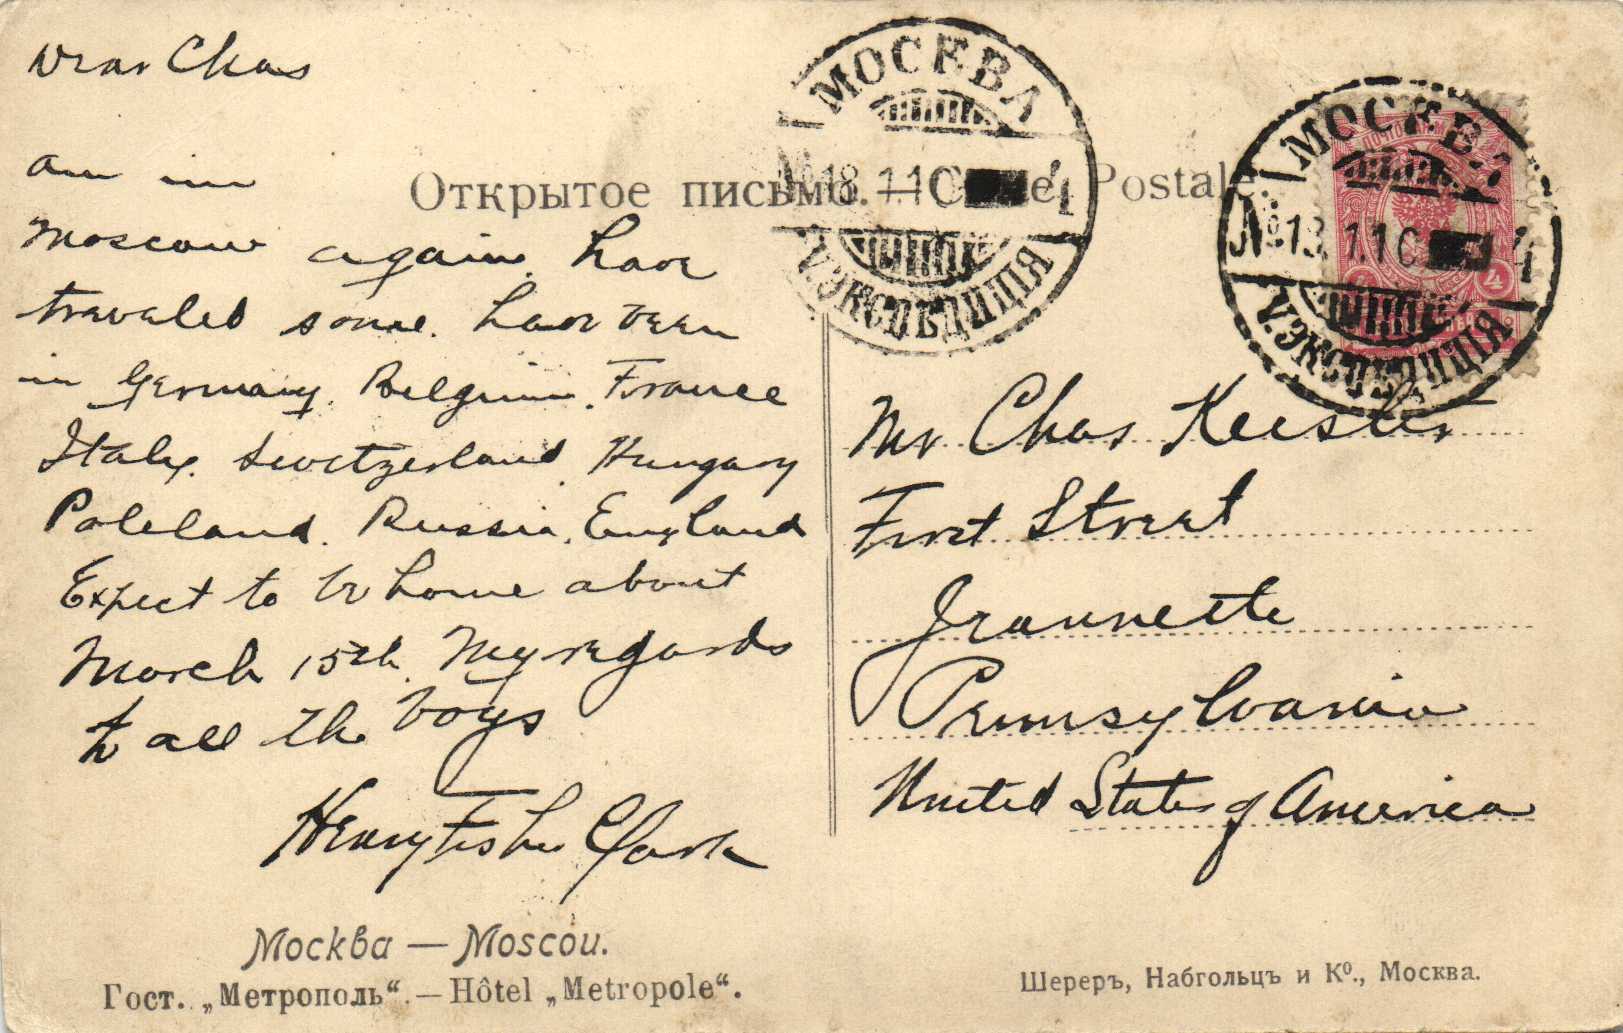 Dear Chas
am in
Moscow again. have
traveled some. have been
in Germany. Belgium. France
Italy. Switzerland. Hungary
Poleland. Russia. England
Expect to be home about
March 15th. My regards
to all the boys
Henry Fisher Clark
Открытое письмо. — Postale
МОСКВА
18.1.10
V. ЭКСПЕДИЦІЯ
МОСКВА
№ 18.1.10
V. ЭКСПЕДИЦІЯ
4
Mr Chas Keister
First Street
Jeannette
Pennsylvania
United States of America
Москва — Moscou.
Гост. „Метрополь“. — Hôtel „Metropole“.
Шереръ, Набгольцъ и Ко., Москва.